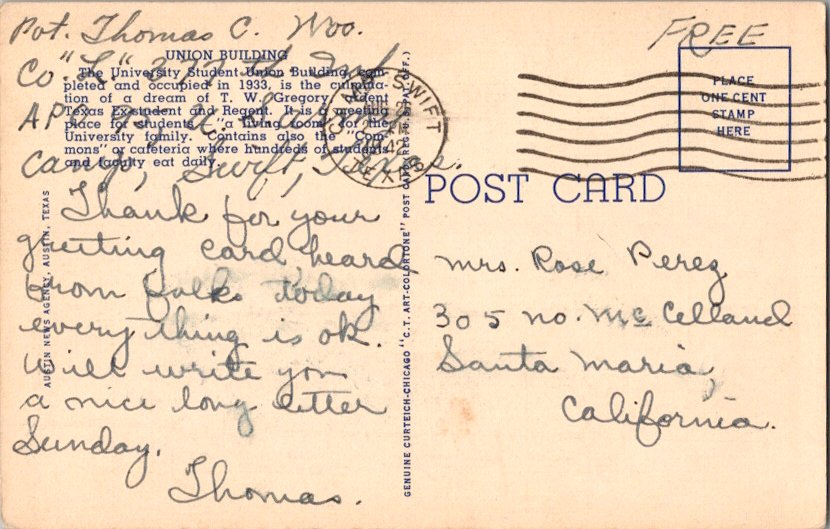 Pvt. Thomas C. Woo.
FREE
Co "L" 377 th Inf.
APO 95, U.S. Army
Camp, Swift, Texas.
UNION BUILDING
The University Student Union Building, com-
pleted and occupied in 1933, is the culmina-
tion of a dream of T. W. Gregory, ardent
Texas Ex-student and Regent. It is a meeting
place for students, a "living room" for the
University family. Contains also the "Com-
mons" or cafeteria where hundreds of students
and faculty eat daily.
CAMP SWIFT
TEXAS
PLACE
ONE CENT
STAMP
HERE
POST CARD
AUSTIN NEWS AGENCY, AUSTIN, TEXAS
GENUINE CURTEICH-CHICAGO "C.T. ART-COLORTONE" POST CARD (REG. U.S. PAT. OFF.)
Thank for your
greeting card, heard
from folks today
everything is ok.
Will write you
a nice long letter
Sunday.
Thomas.
Mrs. Rose Perez
305 No. McClelland
Santa Maria,
California.